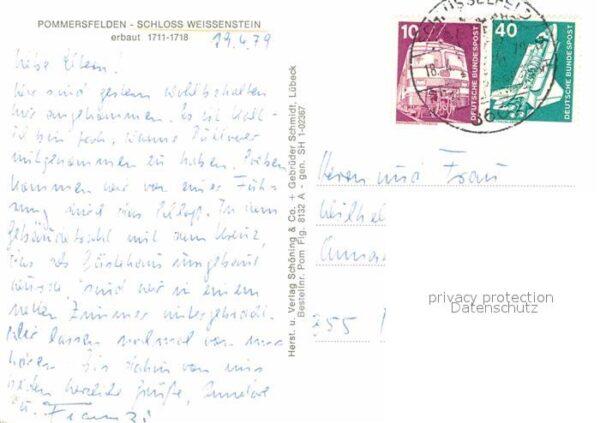 POMMERSFELDEN - SCHLOSS WEISSENSTEIN
erbaut 1711-1718
19.4.79
Liebe Eltern!
Wir sind gestern wohlbehalten
hier angekommen. Es ist kalt -
ich bin froh, warme Pullover
mitgenommen zu haben. Soeben
kommen wir von einer Füh-
rung durch das Schloß. In dem
Gebäudetrakt mit dem Kreuz,
das als Gästehaus umgebaut
wurde, sind wir in einem
netten Zimmer untergebracht.
Wir lassen nochmal von uns
hören. Bis dahin von uns
beiden herzliche Grüße,
u. Franz
Herst. u. Verlag Schöning & Co. + Gebrüder Schmidt, Lübeck
Bestellnr. Pom Flg. 8132 A - gen. SH 1-02367
10
DEUTSCHE BUNDESPOST
40
DEUTSCHE BUNDESPOST
Herrn und Frau
Wilhel
355
privacy protection
Datenschutz